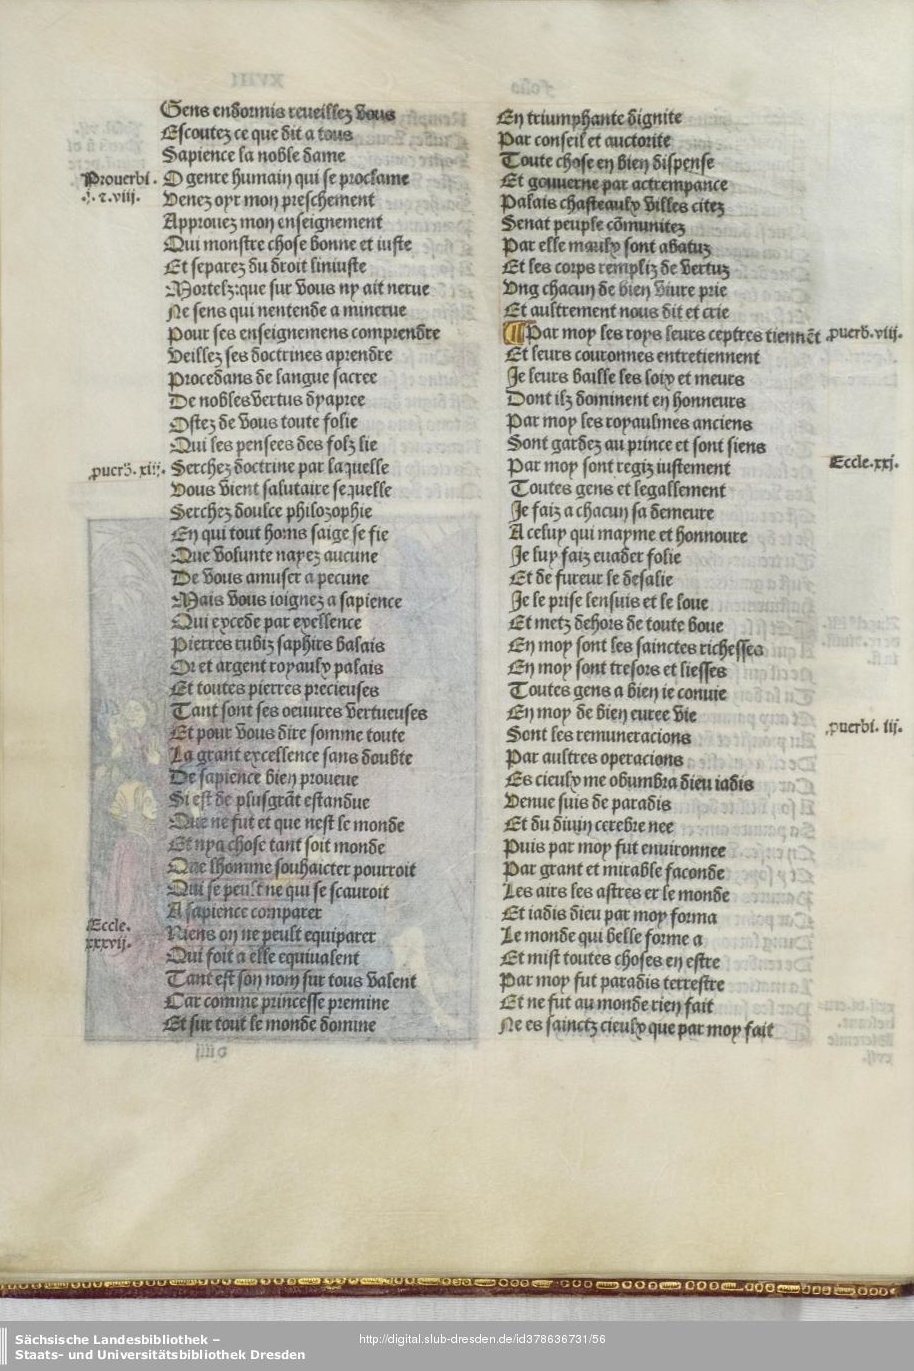 Gens endormis reueillez vous
Escoutez ce que dit a tous
Sapience la noble dame
Prouerbi.
.j. ⁊.viij.
O genre humain qui se proclame
Venez oyr mon preschement
Approuez mon enseignement
Qui monstre chose bonne et iuste
Et separez du droit liniuste
Mortelz:que sur vous ny ait nerue
Ne sens qui nentende a minerue
Pour ses enseignemens comprendre
Veillez ses doctrines aprendre
Procedans de langue sacree
De nobles vertus dyapree
Ostez de vous toute folie
Qui les pensees des folz lie
puerb̃. xiij.
Serchez doctrine par laquelle
Vous vient salutaire sequelle
Serchez doulce philozophie
En qui tout homs saige se fie
Que volunte nayez aucune
De vous amuser a pecune
Mais vous ioignez a sapience
Qui excede par excellence
Pierres rubiz saphirs balais
Or et argent royaulx palais
Et toutes pierres precieuses
Tant sont ses oeuures vertueuses
Et pour vous dire somme toute
La grant excellence sans doubte
De sapience bien proueue
Si est de plusgrãt estandue
Que ne fut et que nest le monde
Et nya chose tant soit monde
Que lhomme souhaicter pourroit
Qui se peult ne qui se scauroit
A sapience comparer
Eccle.
xxxvij.
Riens on ne peult equiparer
Qui soit a elle equiualent
Tant est son nom sur tous valent
Car comme princesse premine
Et sur tout le monde domine
En triumphante dignite
Par conseil et auctorite
Toute chose en bien dispense
Et gouuerne par actrempance
Palais chasteaulx villes citez
Senat peuple cõmunitez
Par elle maulx sont abatuz
Et les corps rempliz de vertuz
Vng chacun de bien viure prie
Et aultrement nous dit et crie
¶ Par moy les roys leurs ceptres tiennẽt
puerb̃. viij.
Et leurs couronnes entretiennent
Je leurs baille les loix et meurs
Dont ilz dominent en honneurs
Par moy les royaulmes anciens
Sont gardez au prince et sont siens
Par moy sont regiz iustement
Eccle.xxj.
Toutes gens et legallement
Je faiz a chacun sa demeure
A celuy qui mayme et honnoure
Je luy faiz euader folie
Et de fureur le deslie
Je le prise lensuis et le loue
Et metz dehors de toute boue
En moy sont les sainctes richesses
En moy sont tresors et liesses
Toutes gens a bien ie conuie
En moy de bien euree vie
Sont les remuneracions
puerbi. iij.
Par aultres operacions
Es cieulx me obumbra dieu iadis
Venue suis de paradis
Et du diuin cerebre nee
Puis par moy fut enuironnee
Par grant et mirable faconde
Les airs les astres et le monde
Et iadis dieu par moy forma
Le monde qui belle forme a
Et mist toutes choses en estre
Par moy fut paradis terrestre
Et ne fut au monde rien fait
Ne es sainctz cieulx que par moy fait
Sächsische Landesbibliothek –
Staats- und Universitätsbibliothek Dresden
http://digital.slub-dresden.de/id378636731/56